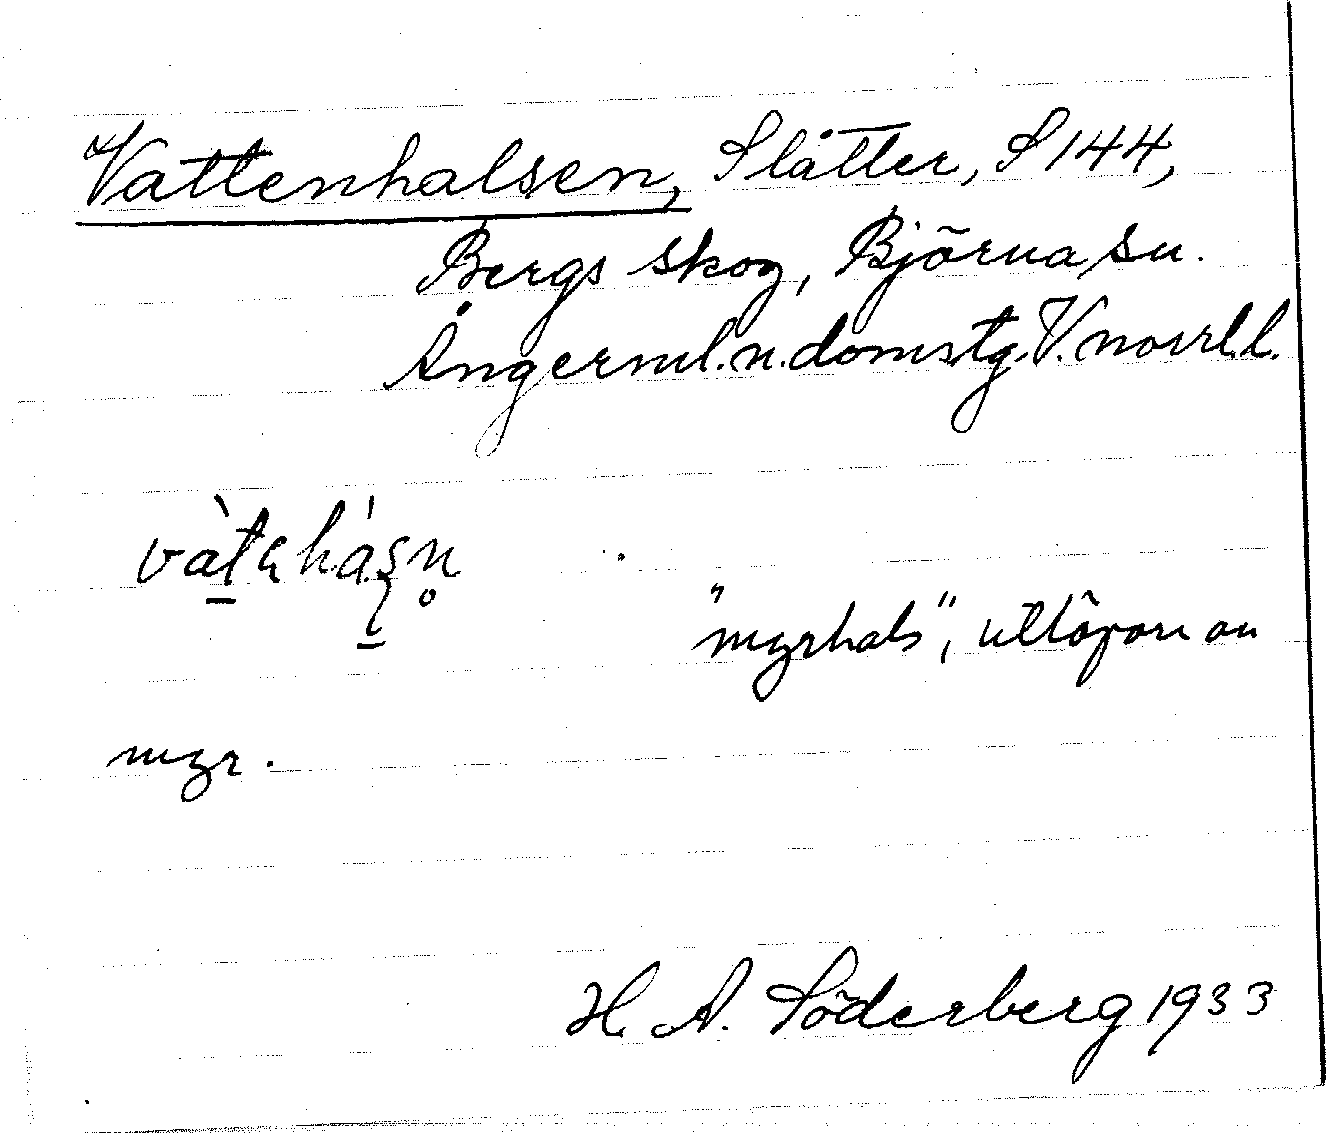 Vattenhalsen, Slåtter, S 144,
Bergs skog, Björna sn.
Ångerml. n. domstg. V. norrl. l.
"myrhals", utlöpare av
myr.
H. A. Söderberg 1933